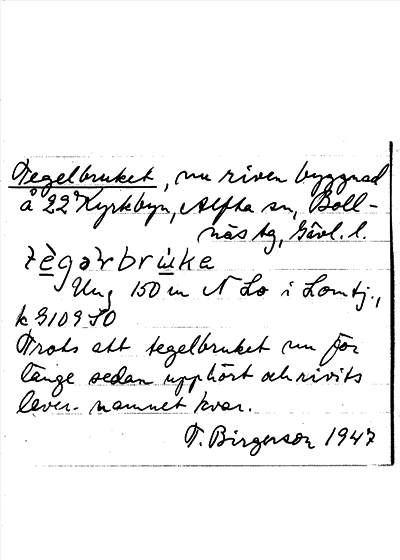 Tegelbruket, nu riven byggnad
å 22² Kyrkbyn, Alfta sn, Boll-
näs tg, Gävl. l.
tègəɿbrùka
Ung 150 m N Lo i Lomtj.,
k 9109 SO
Trots att tegelbruket nu för
länge sedan upphört och rivits
lever namnet kvar.
T. Birgerson 1947